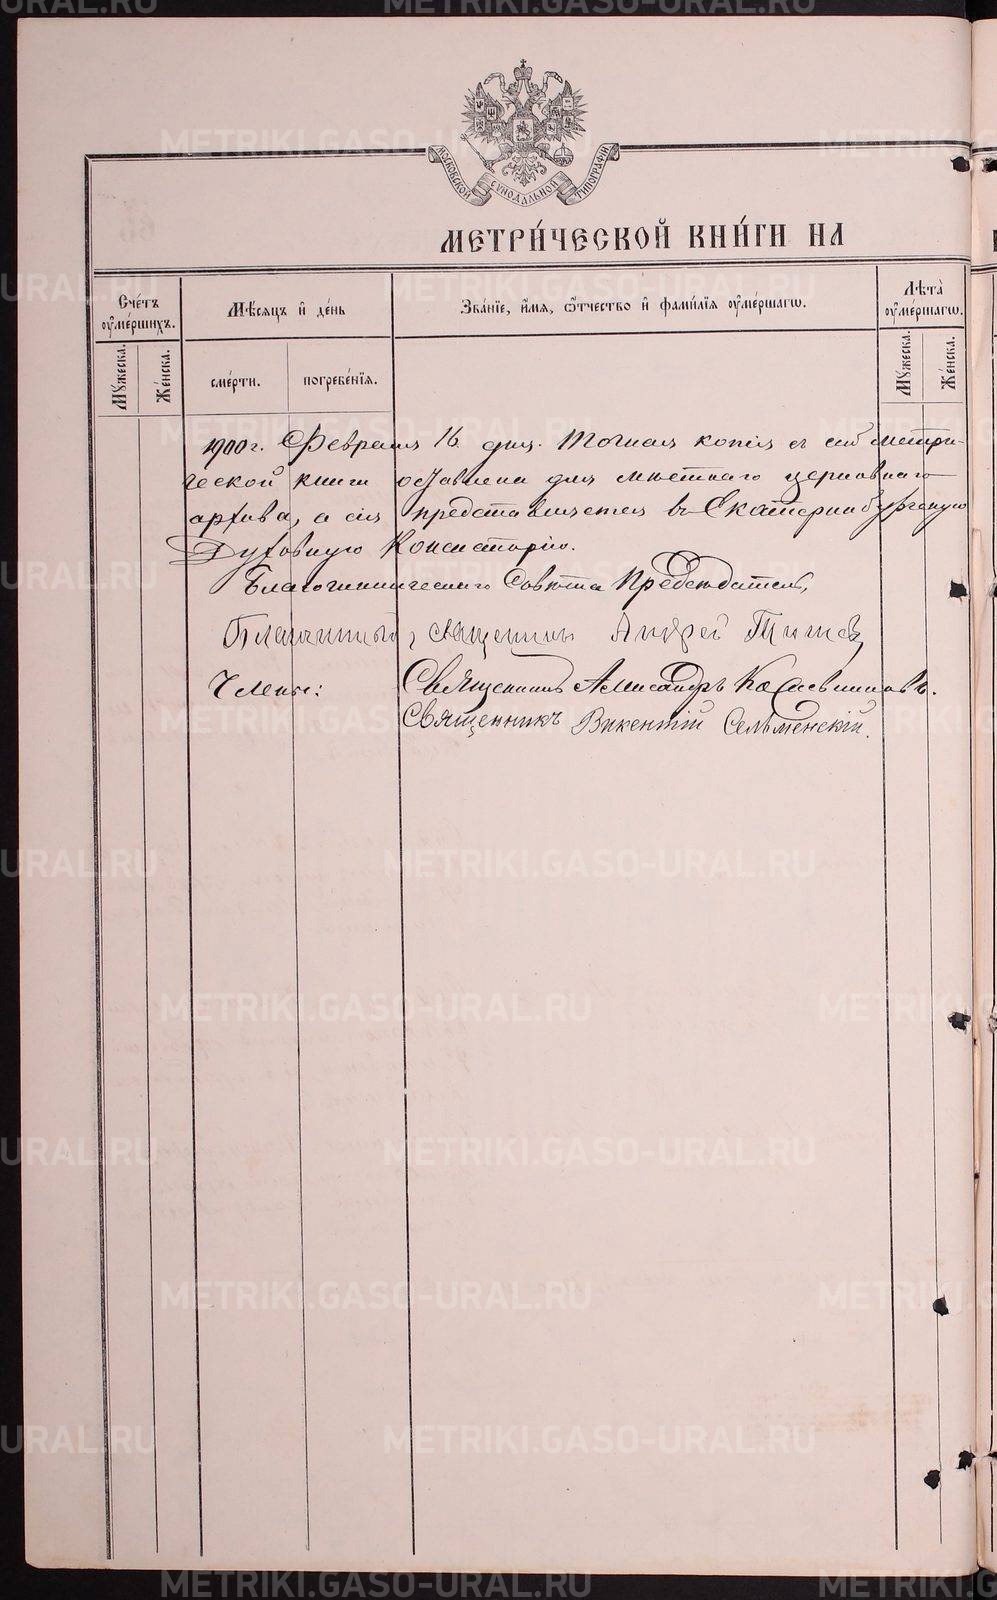 МОСКОВСКОЙ СУНОДАЛЬНОЙ ТИПОГРАФИИ
МЕТРИ́ЧЕСКОЙ КНИ́ГИ НА
Сче́тъ ᲂу҆ме́ршихъ.
Мѣ́сяцъ и҆ де́нь
Зва́нїе, и҆́мя, ѻ҆́тчество и҆ фамилїя ᲂу҆ме́ршагѡ.
Лѣ́та ᲂу҆ме́ршагѡ.
Мꙋ́жеска.
Же́нска.
сме́рти.
погребе́нїя.
Мꙋ́жеска.
Же́нска.
1900 г. Февраля 16 дня. Точная копія съ сей метри-
ческой книги оставлена для мѣстнаго церковнаго
архива, а сія представляется въ Екатеринбургскую
Духовную Консисторію.
Благочинническаго Совѣта Предсѣдатель,
Благочинный, священникъ Андрей
Члены: Священникъ Александръ
Священникъ Викентій Сельменскій.
METRIKI.GASO-URAL.RU